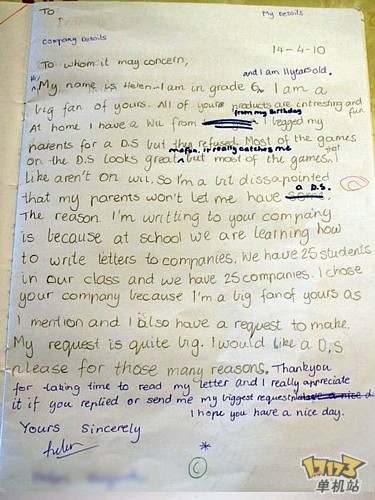 To:
My Details
Company Details
14-4-10
To whom it may concern,
and I am 11 years old.
Hi, My name is Helen. I am in grade 6. I am a
big fan of yours. All of your products are intresting and fun.
At home I have a Wii from my Birthday I begged my
parents for a D.S but they refused. Most of the games
on the D.S looks great but most of the games, that I
like aren't on wii. So I'm a bit dissapointed
that my parents won't let me have a D.S.
The reason I'm writting to your company
is because at school we are learning how
to write letters to companies. We have 25 students
in our class and we have 25 companies. I chose
your company because I'm a big fan of yours as
I mention and I also have a request to make.
My request is quite big. I would like a D.S
please for those many reasons. Thankyou
for taking time to read my letter and I really appreciate
it if you replied or send me my biggest request. have a nice d
I hope you have a nice day.
Yours Sincerely
Helen
*
C
17173
单机站